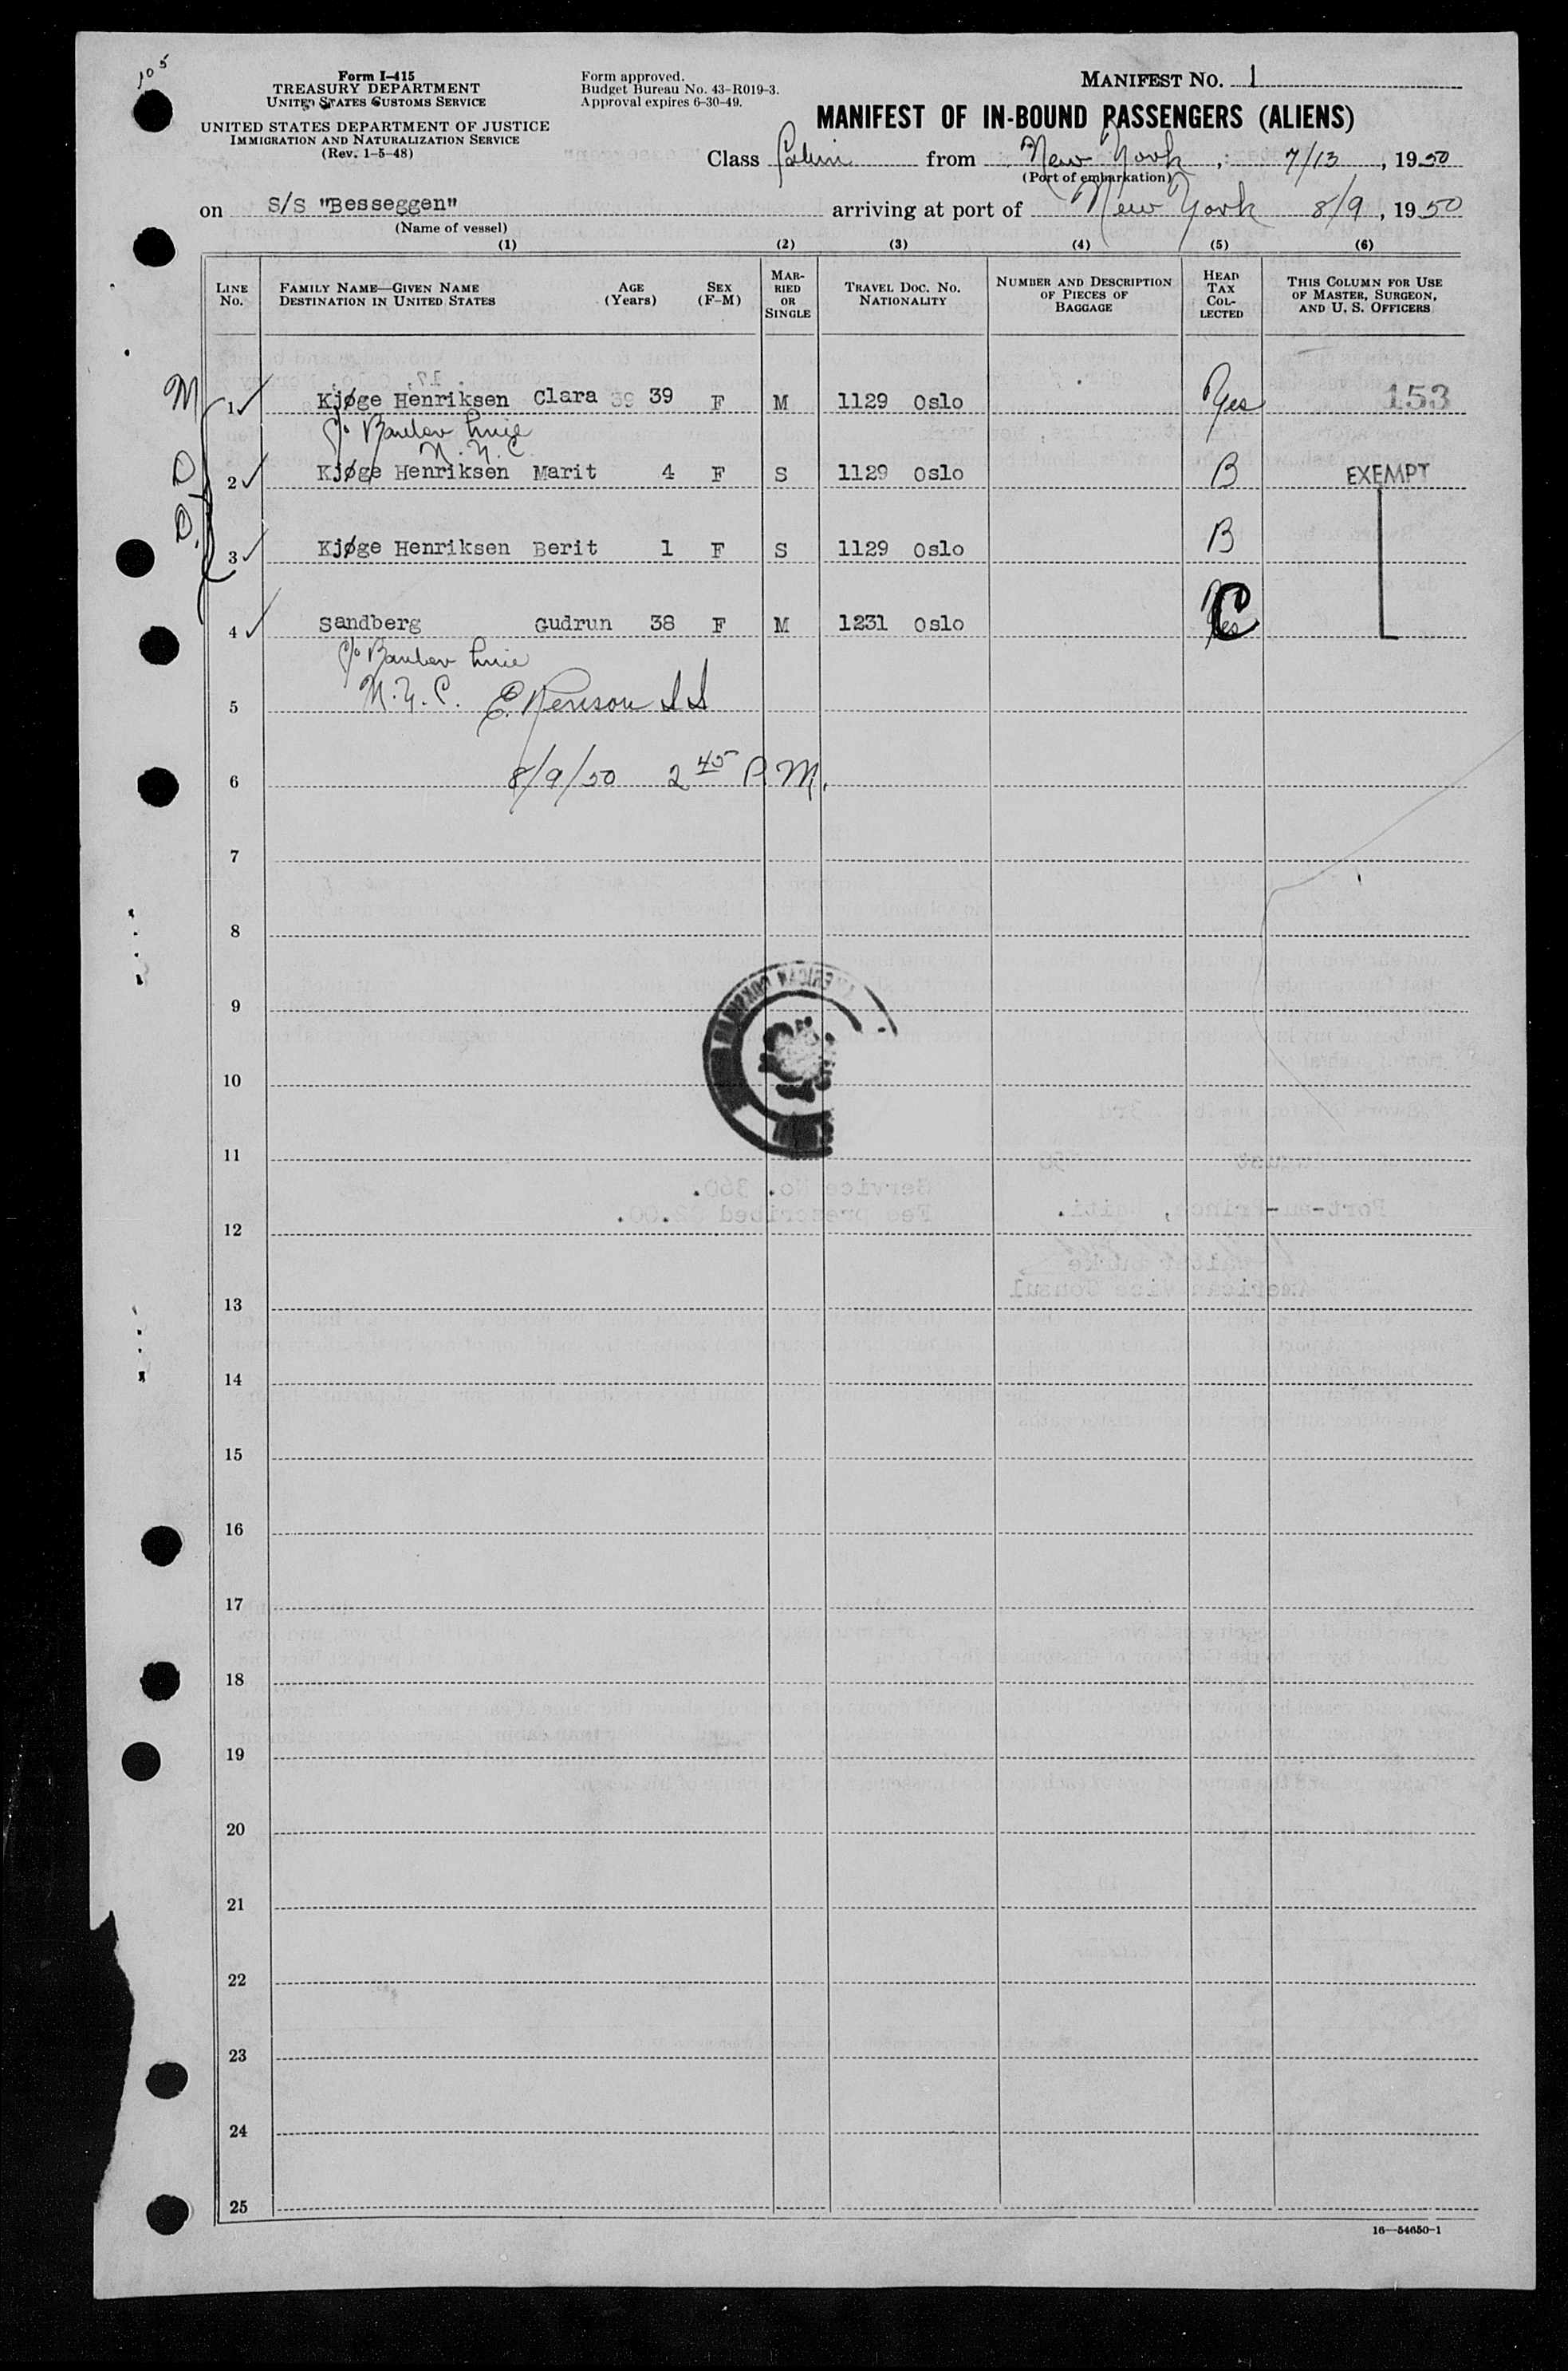 105
Form I-415
TREASURY DEPARTMENT
UNITED STATES CUSTOMS SERVICE
UNITED STATES DEPARTMENT OF JUSTICE
IMMIGRATION AND NATURALIZATION SERVICE
(Rev. 1-5-48)
Form approved.
Budget Bureau No. 43-R019-3.
Approval expires 6-30-49.
MANIFEST NO. 1
MANIFEST OF IN-BOUND PASSENGERS (ALIENS)
Class Cabin from New York, 7/13, 1950
(Port of embarkation)
on S/S "Besseggen" arriving at port of New York 8/9, 1950
(Name of vessel)
(1) (2) (3) (4) (5) (6)
LINE No. FAMILY NAME—GIVEN NAME DESTINATION IN UNITED STATES AGE (Years) SEX (F-M) MARRIED OR SINGLE TRAVEL DOC. NO. NATIONALITY NUMBER AND DESCRIPTION OF PIECES OF BAGGAGE HEAD TAX COLLECTED THIS COLUMN FOR USE OF MASTER, SURGEON, AND U. S. OFFICERS
M 1 Kjøge Henriksen Clara 39 39 F M 1129 Oslo Yes 153
c/o Line
N.Y.C.
D 2 Kjøge Henriksen Marit 4 F S 1129 Oslo B EXEMPT
D. 3 Kjøge Henriksen Berit 1 F S 1129 Oslo B
4 Sandberg Gudrun 38 F M 1231 Oslo Yes C
c/o Line
N.Y.C.
5
6 8/9/50 2 45 P.M.
7
8
9
10
11
12
13
14
15
16
17
18
19
20
21
22
23
24
25
16—54650-1